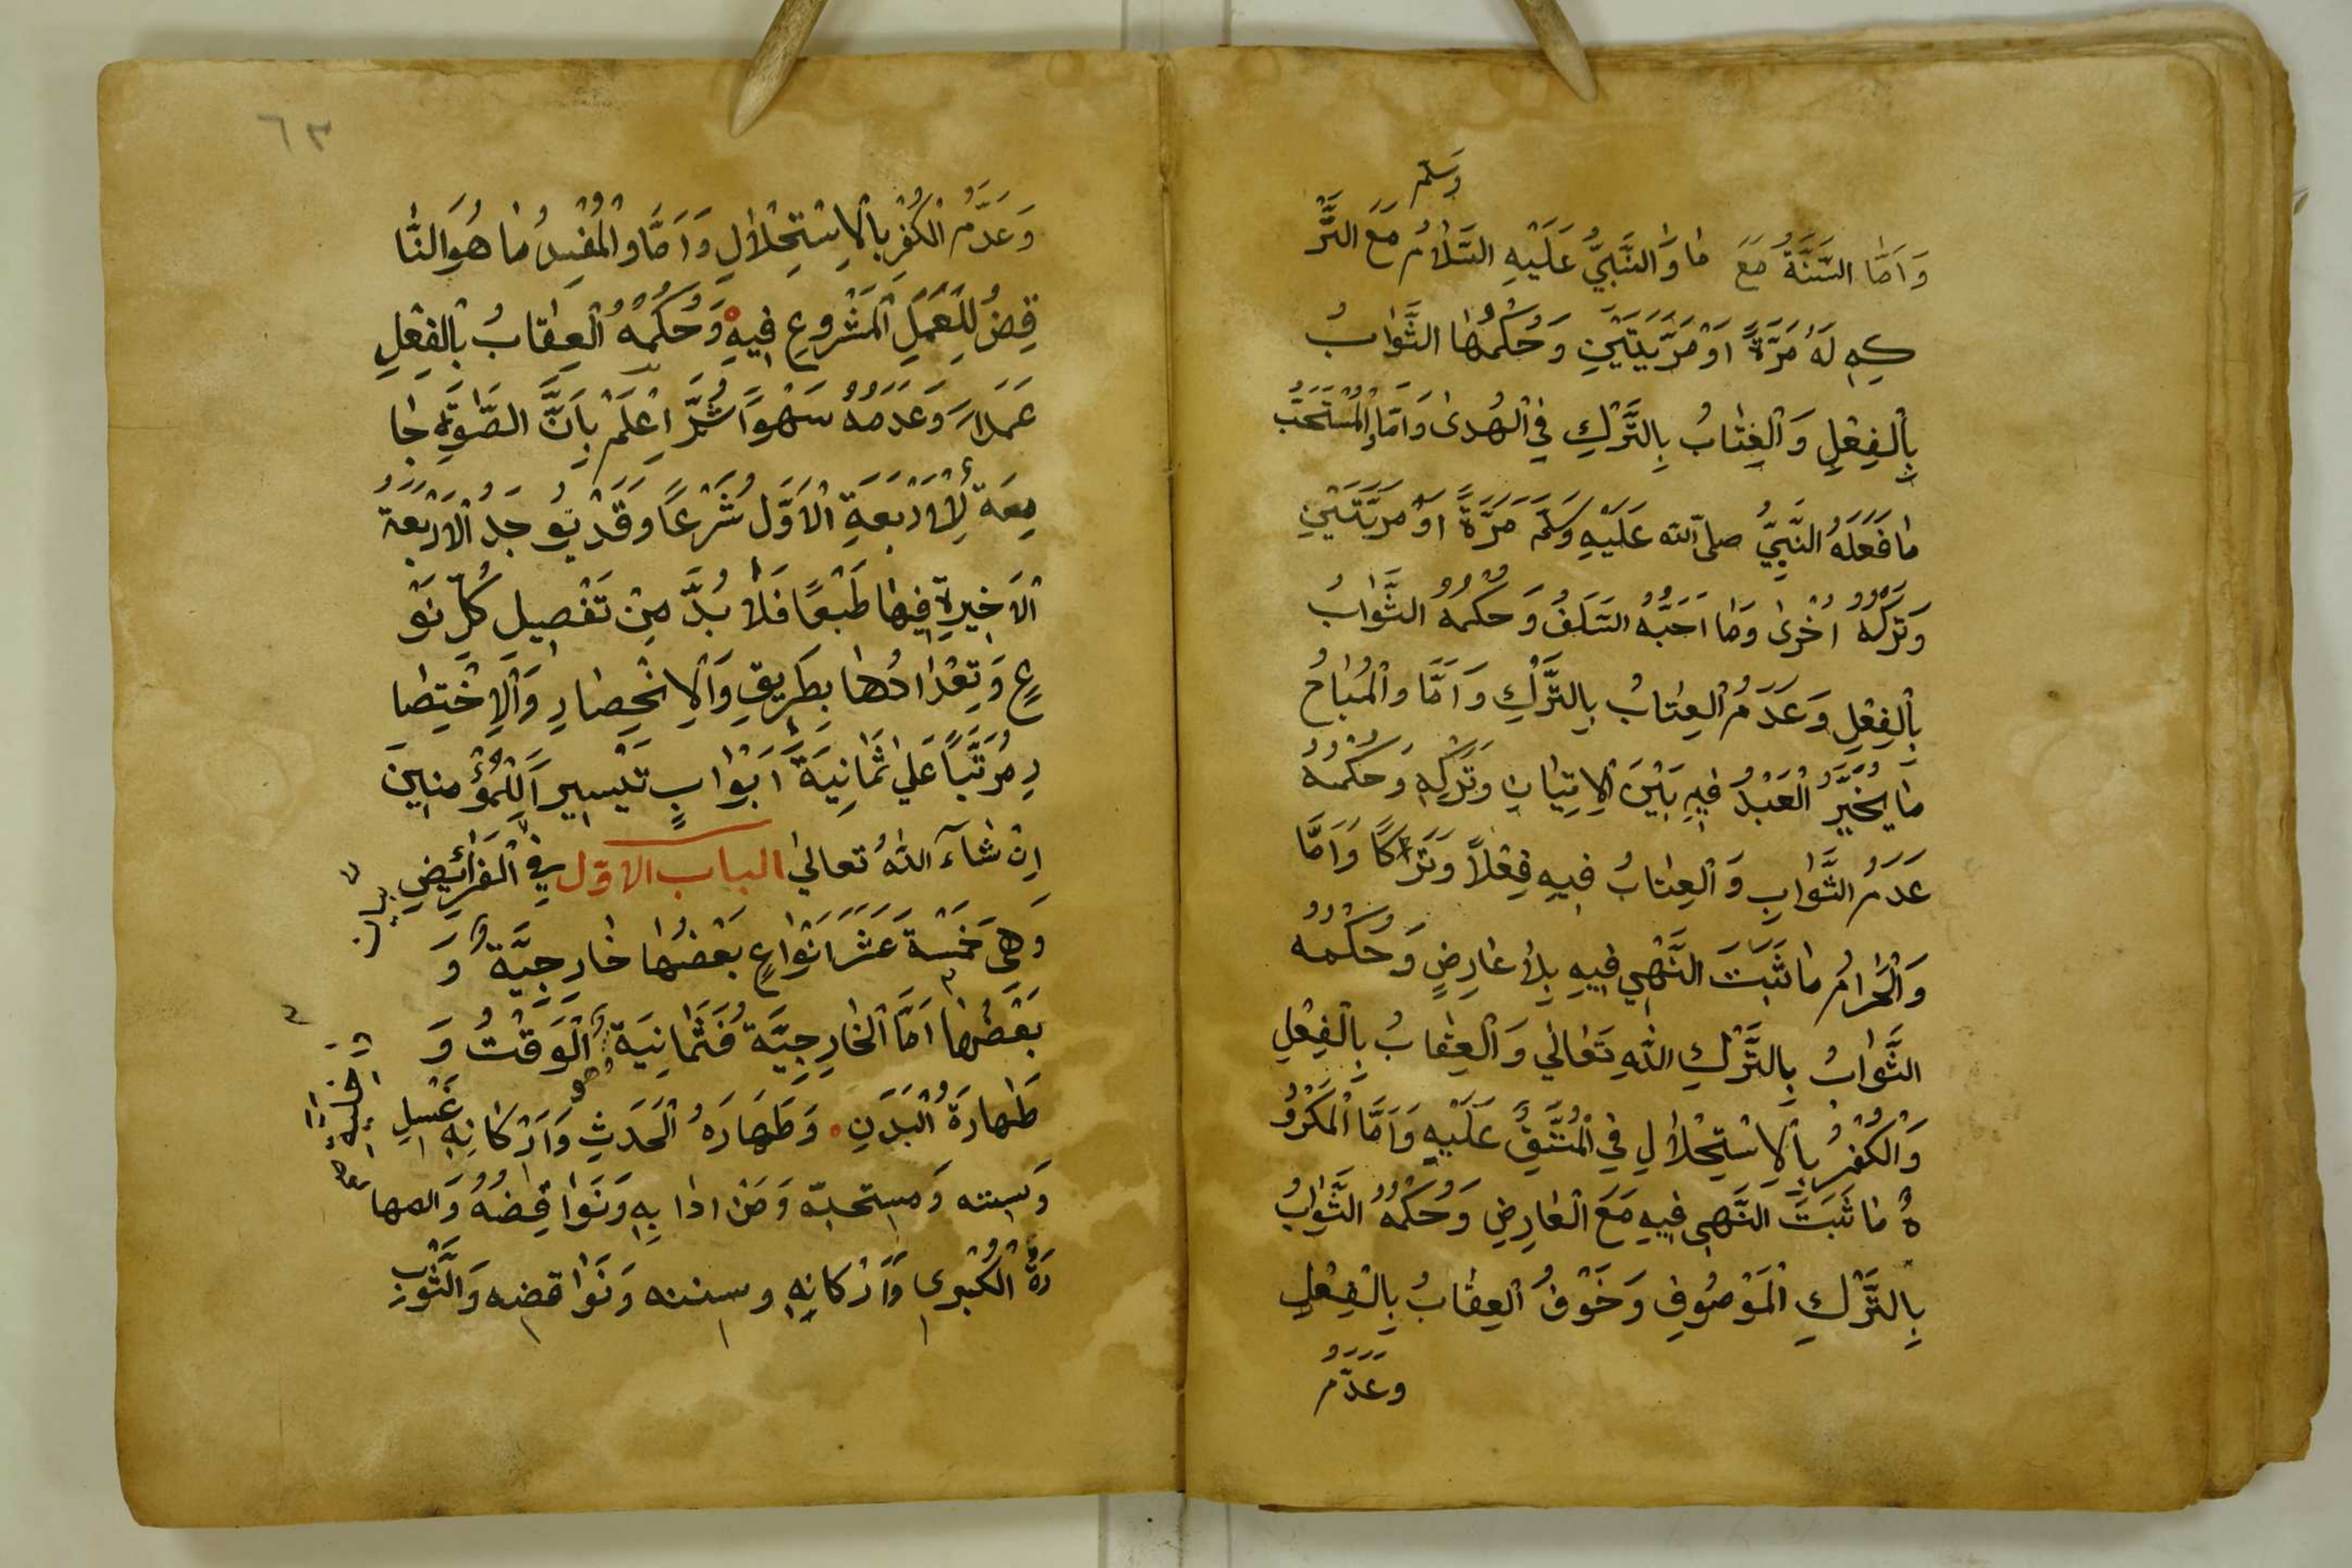 وسلم
وَاَمَّا السُّنَّةُ مَعَ مَا وَالنَّبِيُّ عَلَيْهِ السَّلَامُ مَعَ التَّرْ
كِهِ لَهُ مَرَّةً اَوْ مَرَّتَيْنِ وَحُكْمُهَا الثَّوَابُ
بِالْفِعْلِ وَالْعِتَابُ بِالتَّرْكِ فِي الْهُدٰى وَاَمَّا وَالْمُسْتَحَبُّ
مَا فَعَلَهُ النَّبِيُّ صلى الله عَلَيْهِ وَسَلَّمَ مَرَّةً اَوْ مَرَّتَيْنِ
وَتَرَكَهُ اُخْرٰى وَمَا اَحَبَّهُ السَّلَفُ وَحُكْمُهُ الثَّوَابُ
بِالْفِعْلِ وَعَدَمُ الْعِتَابُ بِالتَّرْكِ وَاَمَّا وَالْمُبَاحُ
مَا يُخَيَّرُ الْعَبْدُ فِيهِ بَيْنَ الْاِتْيَانِ وَتَرْكِهِ وَحُكْمُهُ
عَدَمُ الثَّوَابِ وَالْعِتَابُ فِيهِ فِعْلًا وَتَرْكًا وَاَمَّا
وَالْحَرَامُ مَا ثَبَتَ النَّهْيِ فِيهِ بِلَا عَارِضٍ وَحُكْمُهُ
الثَّوَابُ بِالتَّرْكِ اللّٰهِ تَعَالٰي وَالْعِقَابُ بِالْفِعْلِ
وَالْكُفْرُ بِالْاِسْتِحْلَالِ فِي الْمُتَّفِقِ عَلَيْهِ وَاَمَّا الْمَكْرُو
هُ مَا ثَبَتَ النَّهْيِ فِيهِ مَعَ الْعَارِضِ وَحُكْمُهُ الثَّوَابُ
بِالتَّرْكِ الْمَوْصُوفِ وَخَوْفُ الْعِقَابُ بِالْفِعْلِ
وَعَدَمُ
٦٣
وَعَدَمُ الْكُفْرِ بِالْاِسْتِحْلَالِ وَاَمَّا وَالْمُفْسِدُ مَا هُوَ النَّا
قِضُ لِلْعَمَلِ الْمَشْرُوعِ فِيهِ وَحُكْمُهُ الْعِقَابُ بِالْفِعْلِ
عَمَدًا وَعَدَمُهُ سَهْوًا ثُمَّ اعْلَمْ بِاَنَّ الصَّلٰوةَ جَا
مِعَة لِلْاَرْبَعَةِ الْاَوَّلِ شَرْعًا وَقَدْ يُوجَدُ الْاَرْبَعَةُ
الْاَخِيرَةِ فِيهَا طَبْعًا فَلَا بُدَّ مِنْ تَفْصِيلِ كُلِّ نَوْ
عٍ وَتِعْدَادُهَا بِطَرِيقِ وَالْاِنْحِصَارِ وَالْاِخْتِصَا
رِ مُرَتَّبًا عَلٰي ثَمَانِيَةَ اَبْوَابٍ تَيْسِيراً لِلْمُؤْمِنِينَ
اِنْ شَآءَ اللّٰهُ تعالٰي الباب الاوّل فِي الْفَرَائِضِ
بيان
وَهِيَ خَمْسَة عَشَرَ اَنْوَاعٍ بَعْضُهَا خَارِجِيَّة وَ
بَعْضُهَا اَمَّا الْخَارِجِيَّة فَثَمَانِيَة الْوَقْتُ وَ
داخلية
طَهَارَةُ الْبَدَنِ وَطَهَارَةُ الْحَدَثِ وَاَرْكَانِهِ غَسْلِ
وَسننه وَمستحبّه وَمَنْ اذا بِهِ وَنَوَاقِضُهُ وَالطها
رَةُ الْكُبْرٰى وَاَرْكَانِهِ وسننه وَنَوَاقضه وَالثَّوْبِ